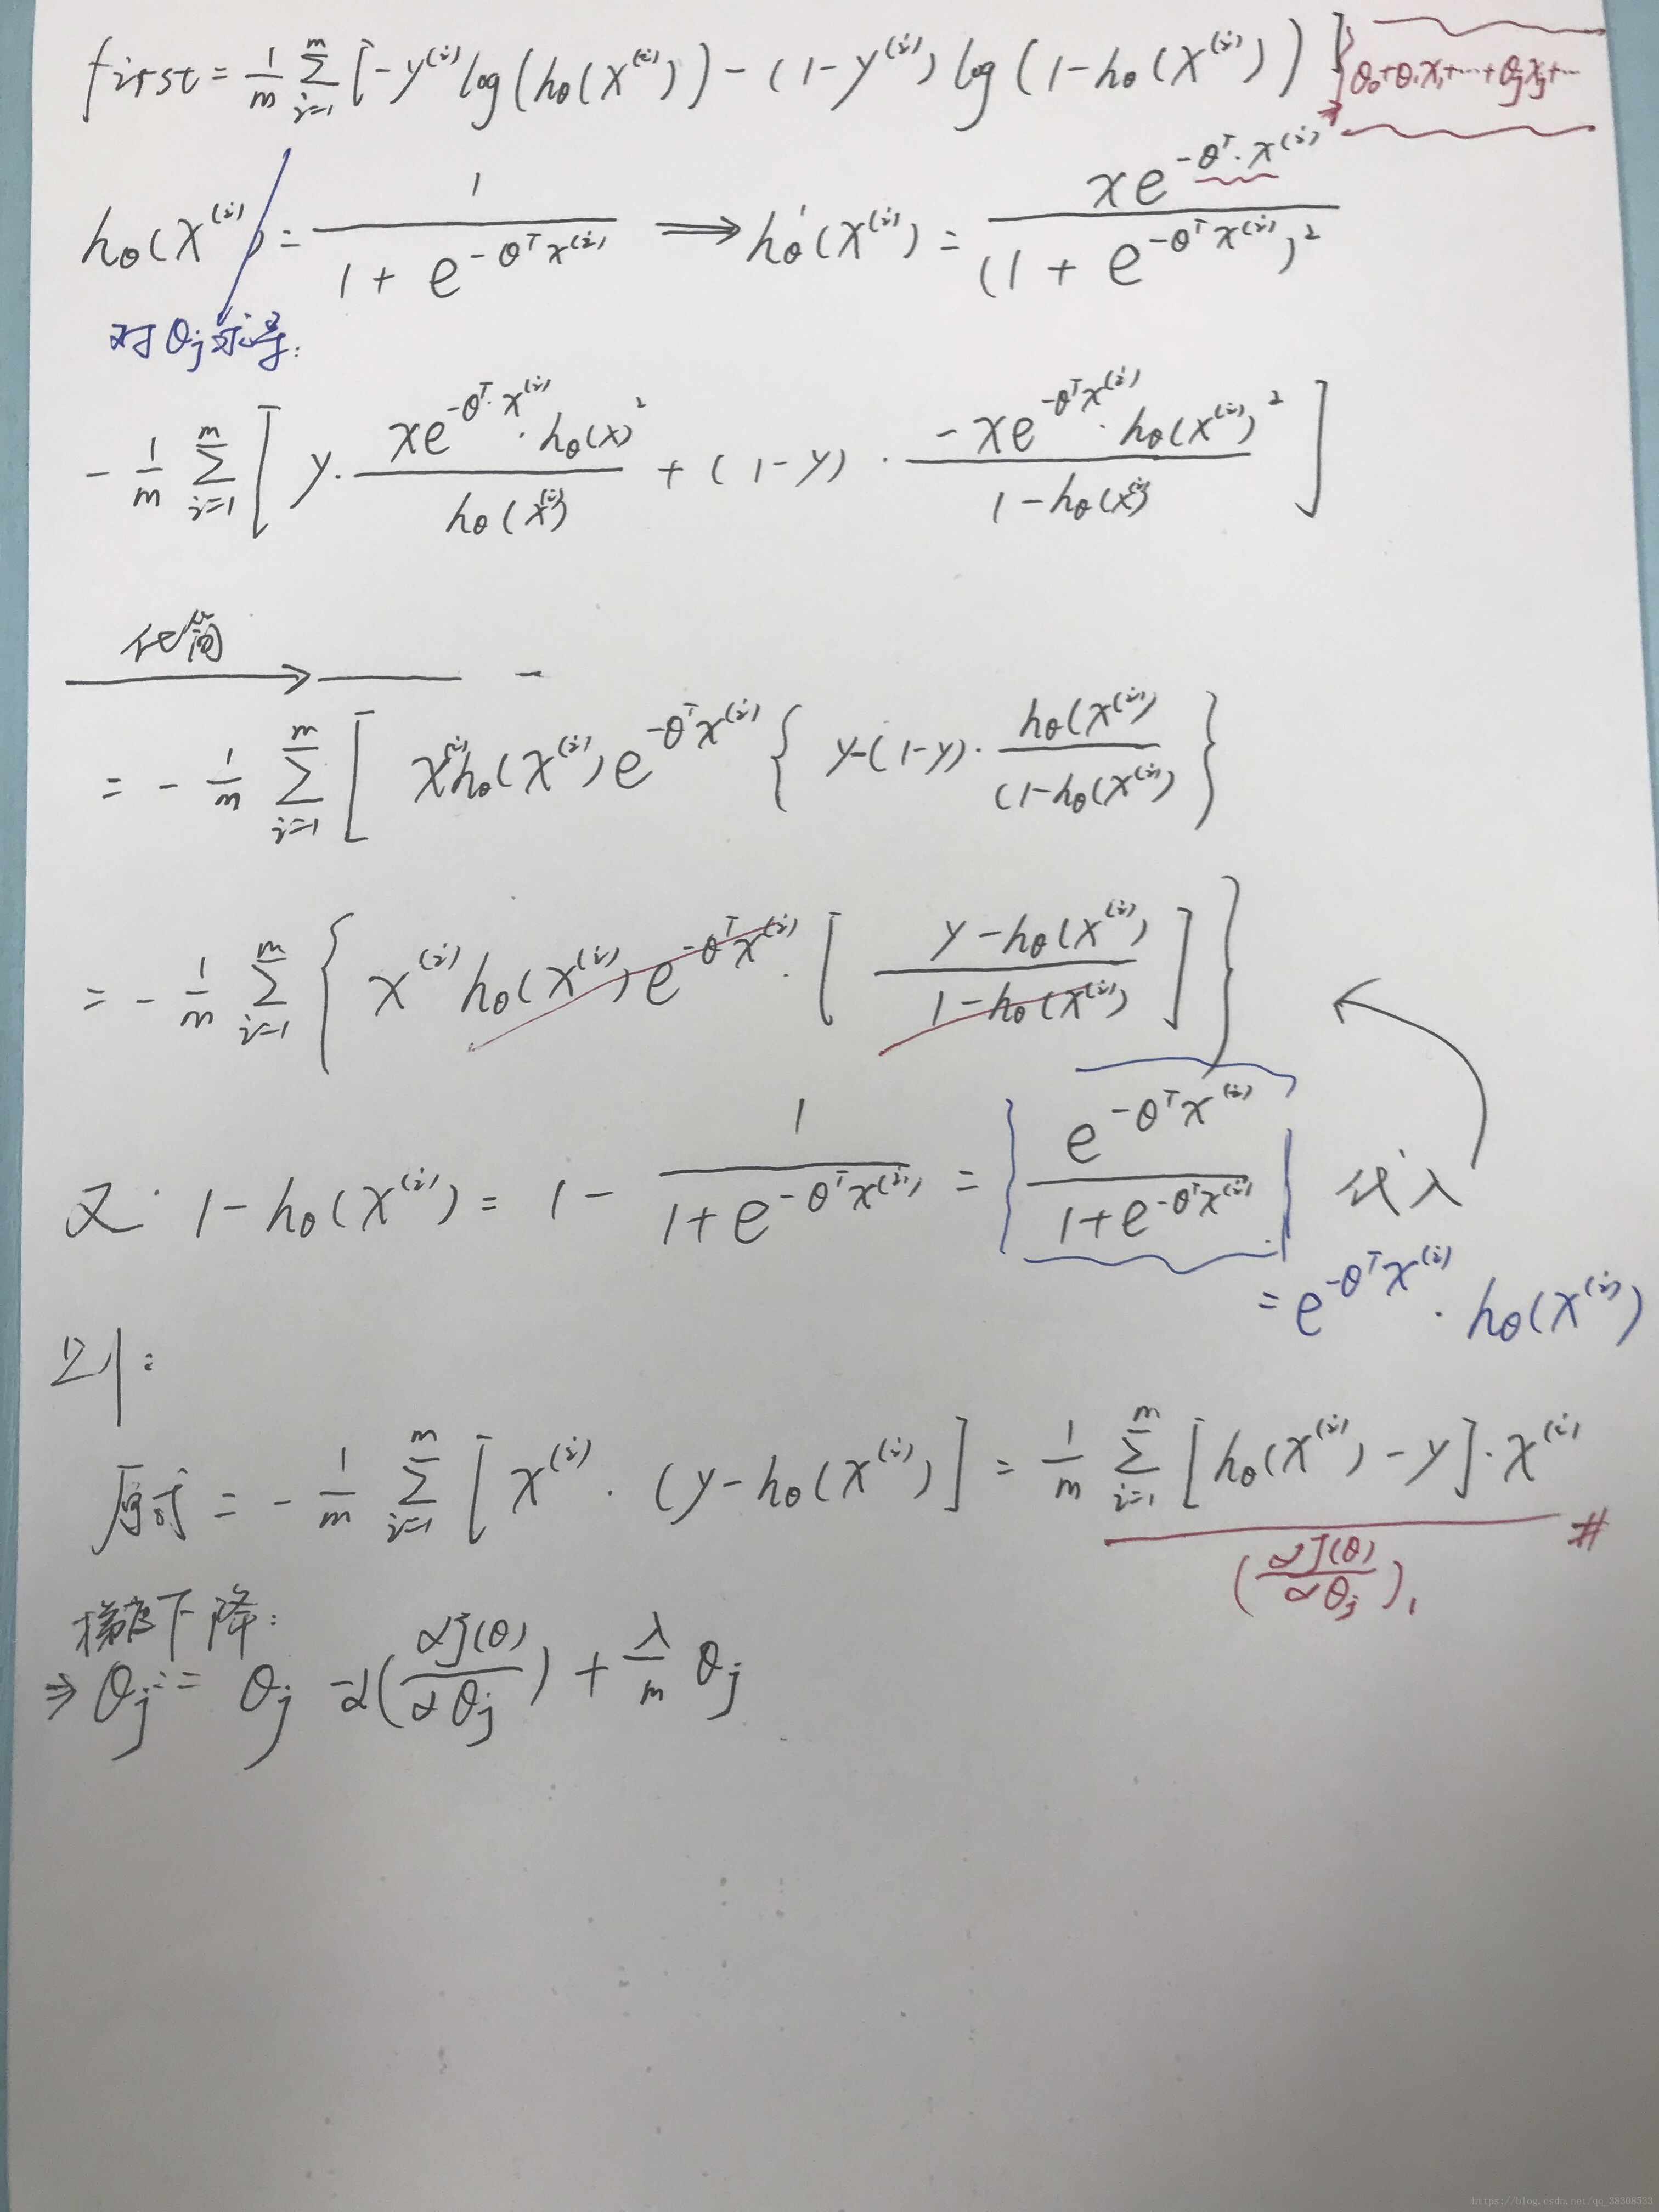 first = 1/m Σ_{i=1}^{m} [-y^(i) log(hθ(x^(i))) - (1-y^(i)) log(1-hθ(x^(i)))]
θ₀+θ₁x₁+…+θⱼxⱼ+…
hθ(x^(i)) = 1/(1+e^{-θ^T x^(i)}) ⟹ hθ'(x^(i)) = xe^{-θ^T·x^(i)}/(1+e^{-θ^T x^(i)})²
对θⱼ求导:
-1/m Σ_{i=1}^{m} [y·(xe^{-θ^T·x^(i)}·hθ(x)²)/hθ(x^(i)) + (1-y)·(-xe^{-θ^T x^(i)}·hθ(x^(i))²)/(1-hθ(x^(i)))]
化简
= -1/m Σ_{i=1}^{m} [x^(i) hθ(x^(i)) e^{-θ^T x^(i)} {y-(1-y)·hθ(x^(i))/(1-hθ(x^(i))}
= -1/m Σ_{i=1}^{m} {x^(i) hθ(x^(i)) e^{-θ^T x^(i)}·[(y-hθ(x^(i)))/(1-hθ(x^(i)))]}
又: 1-hθ(x^(i)) = 1 - 1/(1+e^{-θ^T x^(i)}) = e^{-θ^T x^(i)}/(1+e^{-θ^T x^(i)}) 代入
= e^{-θ^T x^(i)}·hθ(x^(i))
则:
原式 = -1/m Σ_{i=1}^{m} [x^(i)·(y-hθ(x^(i))] = 1/m Σ_{i=1}^{m} [hθ(x^(i))-y]·x^(i) #
(∂J(θ)/∂θⱼ)₁
梯度下降:
⇒ θⱼ := θⱼ -α(∂J(θ)/∂θⱼ) + λ/m θⱼ
https://blog.csdn.net/qq_38308533